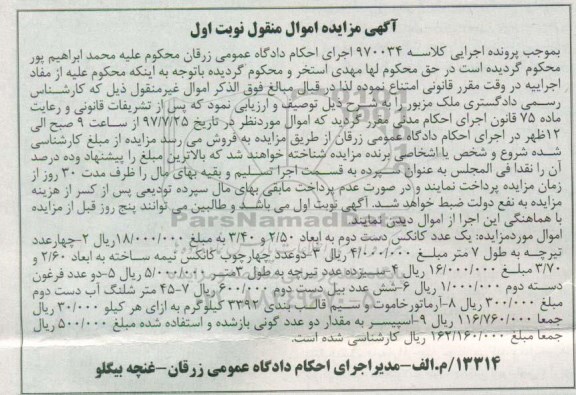 آگهی مزایده اموال منقول نوبت اول
بموجب پرونده اجرایی کلاسه ۹۷۰۰۳۴ اجرای احکام دادگاه عمومی زرقان محکوم علیه محمد ابراهیم پور
محکوم گردیده است در حق محکوم لها مهدی استخر و محکوم گردیده باتوجه به اینکه محکوم علیه از مفاد
اجراییه در وقت مقرر قانونی امتناع نموده لذا در قبال مبالغ فوق الذکر اموال غیرمنقول ذیل که کارشناس
رسمی دادگستری ملک مزبور را به شرح ذیل توصیف و ارزیابی نمود که پس از تشریفات قانونی و رعایت
ماده ۷۵ قانون اجرای احکام مدنی مقرر گردید که اموال موردنظر در تاریخ ۹۷/۷/۲۵ از ساعت ۹ صبح الی
۱۲ظهر در اجرای احکام دادگاه عمومی زرقان از طریق مزایده به فروش می رسد مزایده از مبلغ کارشناسی
شده شروع و شخص یا اشخاصی برنده مزایده شناخته خواهند شد که بالاترین مبلغ را پیشنهاد وده درصد
آن را نقدا فی المجلس به عنوان سپرده به قسمت اجرا تسلیم و بقیه بهای مال را ظرف مدت ۳۰ روز از
زمان مزایده پرداخت نمایند و در صورت عدم پرداخت مابقی بهای مال سپرده تودیعی پس از کسر از هزینه
مزایده به نفع دولت ضبط خواهد شد. آگهی نوبت اول می باشد و طالبین می توانند پنج روز قبل از مزایده
با هماهنگی این اجرا از اموال دیدن نمایند
اموال موردمزایده: یک عدد کانکس دست دوم به ابعاد ۲/۵۰ و ۳/۴۰ به مبلغ ۱۸/۰۰۰/۰۰۰ریال ۲-چهارعدد
تیرچه به طول ۷ متر مبلغ ۴/۰۰۰/۰۰۰ ریال ۳-دوعدد چهارچوب کانکس نیمه ساخته به ابعاد ۲/۶۰ و
۳/۷۰ مبلغ ۱۶/۰۰۰/۰۰۰ ریال ۴-سیزده عدد تیرچه به طول ۲متر ۵/۰۰۰/۰۰۰ ریال ۵-دو عدد فرغون
دسته دوم ۱/۰۰۰/۰۰۰ ریال ۶-شش عدد بیل دست دوم ۶۰۰/۰۰۰ ریال ۷-۴۵ متر شلنگ آب دست دوم
مبلغ ۳۰۰/۰۰۰ ریال ۸-آرماتورخاموت و سیم قالب بندی ۳۳۹۲ کیلوگرم به ازای هر کیلو ۳۰/۰۰۰ ریال
جمعا ۱۱۶/۷۶۰/۰۰۰ ریال ۹-اسپیسر به مقدار دو عدد گونی بازشده و استفاده شده مبلغ ۵۰۰/۰۰۰ ریال
جمعا مبلغ ۱۶۲/۱۶۰/۰۰۰ ریال کارشناسی شده است.
۱۳۳۱۴/م.الف-مدیراجرای احکام دادگاه عمومی زرقان-غنچه بیگلو
ParsNamadData